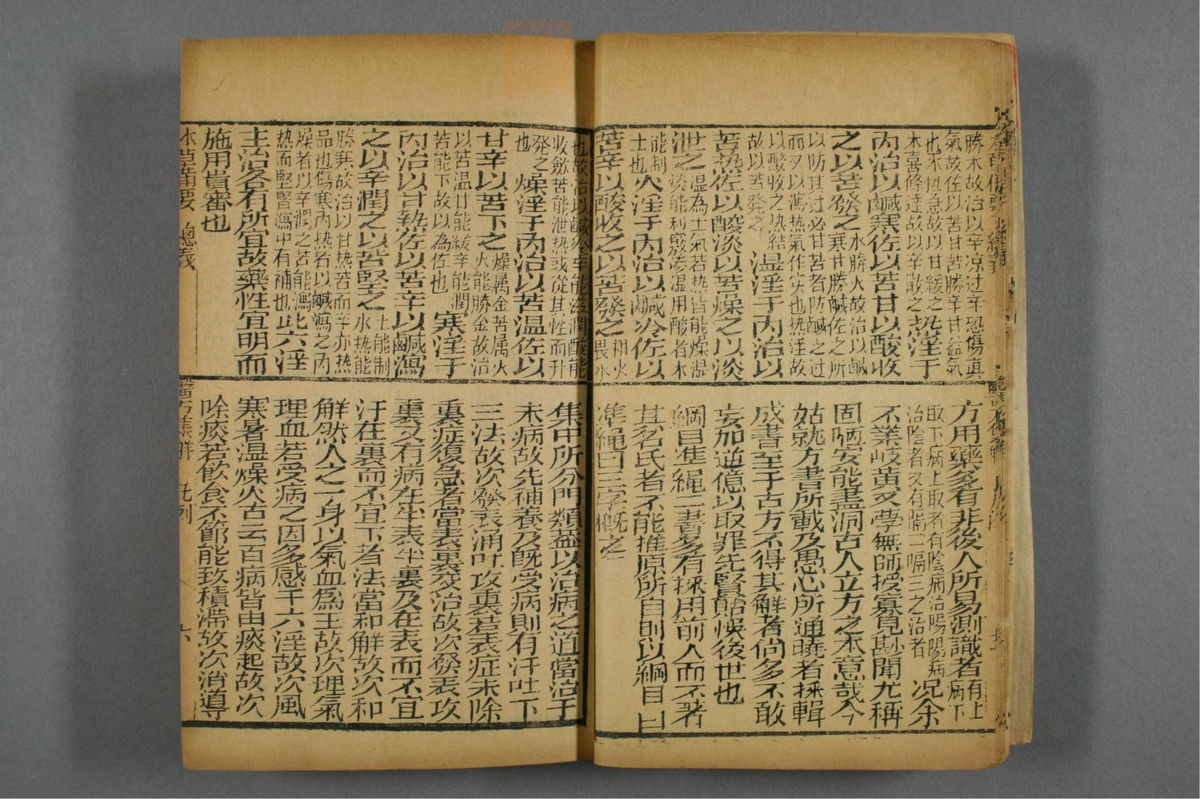 勝木故治以辛凉过辛恐傷其
氣故佐以苦甘苦勝辛甘益氣
也木性急故以甘緩之
木喜條達故以辛散之
热淫于
内治以鹹寒佐以苦甘以酸收
之以苦發之
水勝火故治以鹹
寒甘勝鹹佐之所
以防其过必甘苦者防鹹之过
而又以瀉热氣作实也热淫故
以酸收之热結
故以苦發之
湿淫于内治以
苦热佐以酸淡以苦燥之以淡
泄之
湿為土氣苦热皆能燥湿
淡能利竅渗湿用酸者木
能制
土也
火淫于内治以鹹冷佐以
苦辛以酸收之以苦發之
相火
畏水
方用藥多有非後人所易測識者
有上病下
取下病上取者有陰病治陽陽病
治陰者又有隔二隔三之治者
况余
不業岐黄又學無師授寡見尟聞尤稱
固陋安能盡洞古人立方之本意哉今
姑就方書所載及愚心所通曉者採輯
成書至于古方不得其解者尚多不敢
妄加逆億以取罪先賢貽悞後世也
綱目準繩二書多有採用前人而不著
其名氏者不能推原所自則以綱目曰
準繩曰三字槪之
也故治以鹹冷辛能滋潤酸能
收斂苦能泄热或從其性而升
發之
也
燥淫于内治以苦温佐以
甘辛以苦下之
燥属金苦属火
火能勝金故治
以苦温甘能緩辛能潤
苦能下故以為佐也
寒淫于
内治以甘热佐以苦辛以鹹瀉
之以辛潤之以苦堅之
土能制
水热能
勝寒故治以甘热苦而辛亦热
品也傷寒内热者以鹹瀉之内
燥者以辛潤之苦能瀉
热而堅腎瀉中有補也
此六淫
主治各有所宜故藥性宜明而
施用貴審也
本草備要 總義
集中所分門類蓋以治病之道當治于
未病故先補養及旣受病則有汗吐下
三法故次發表涌吐攻裏若表症未除
裏症復急者當表裏交治故次發表攻
裏又有病在半表半裏及在表而不宜
汗在裏而不宜下者法當和解故次和
解然人之一身以氣血爲主故次理氣
理血若受病之因多感于六淫故次風
寒暑温燥火古云百病皆由痰起故次
除痰若飲食不節能致積滯故次消導
醫方集解 凡例 六